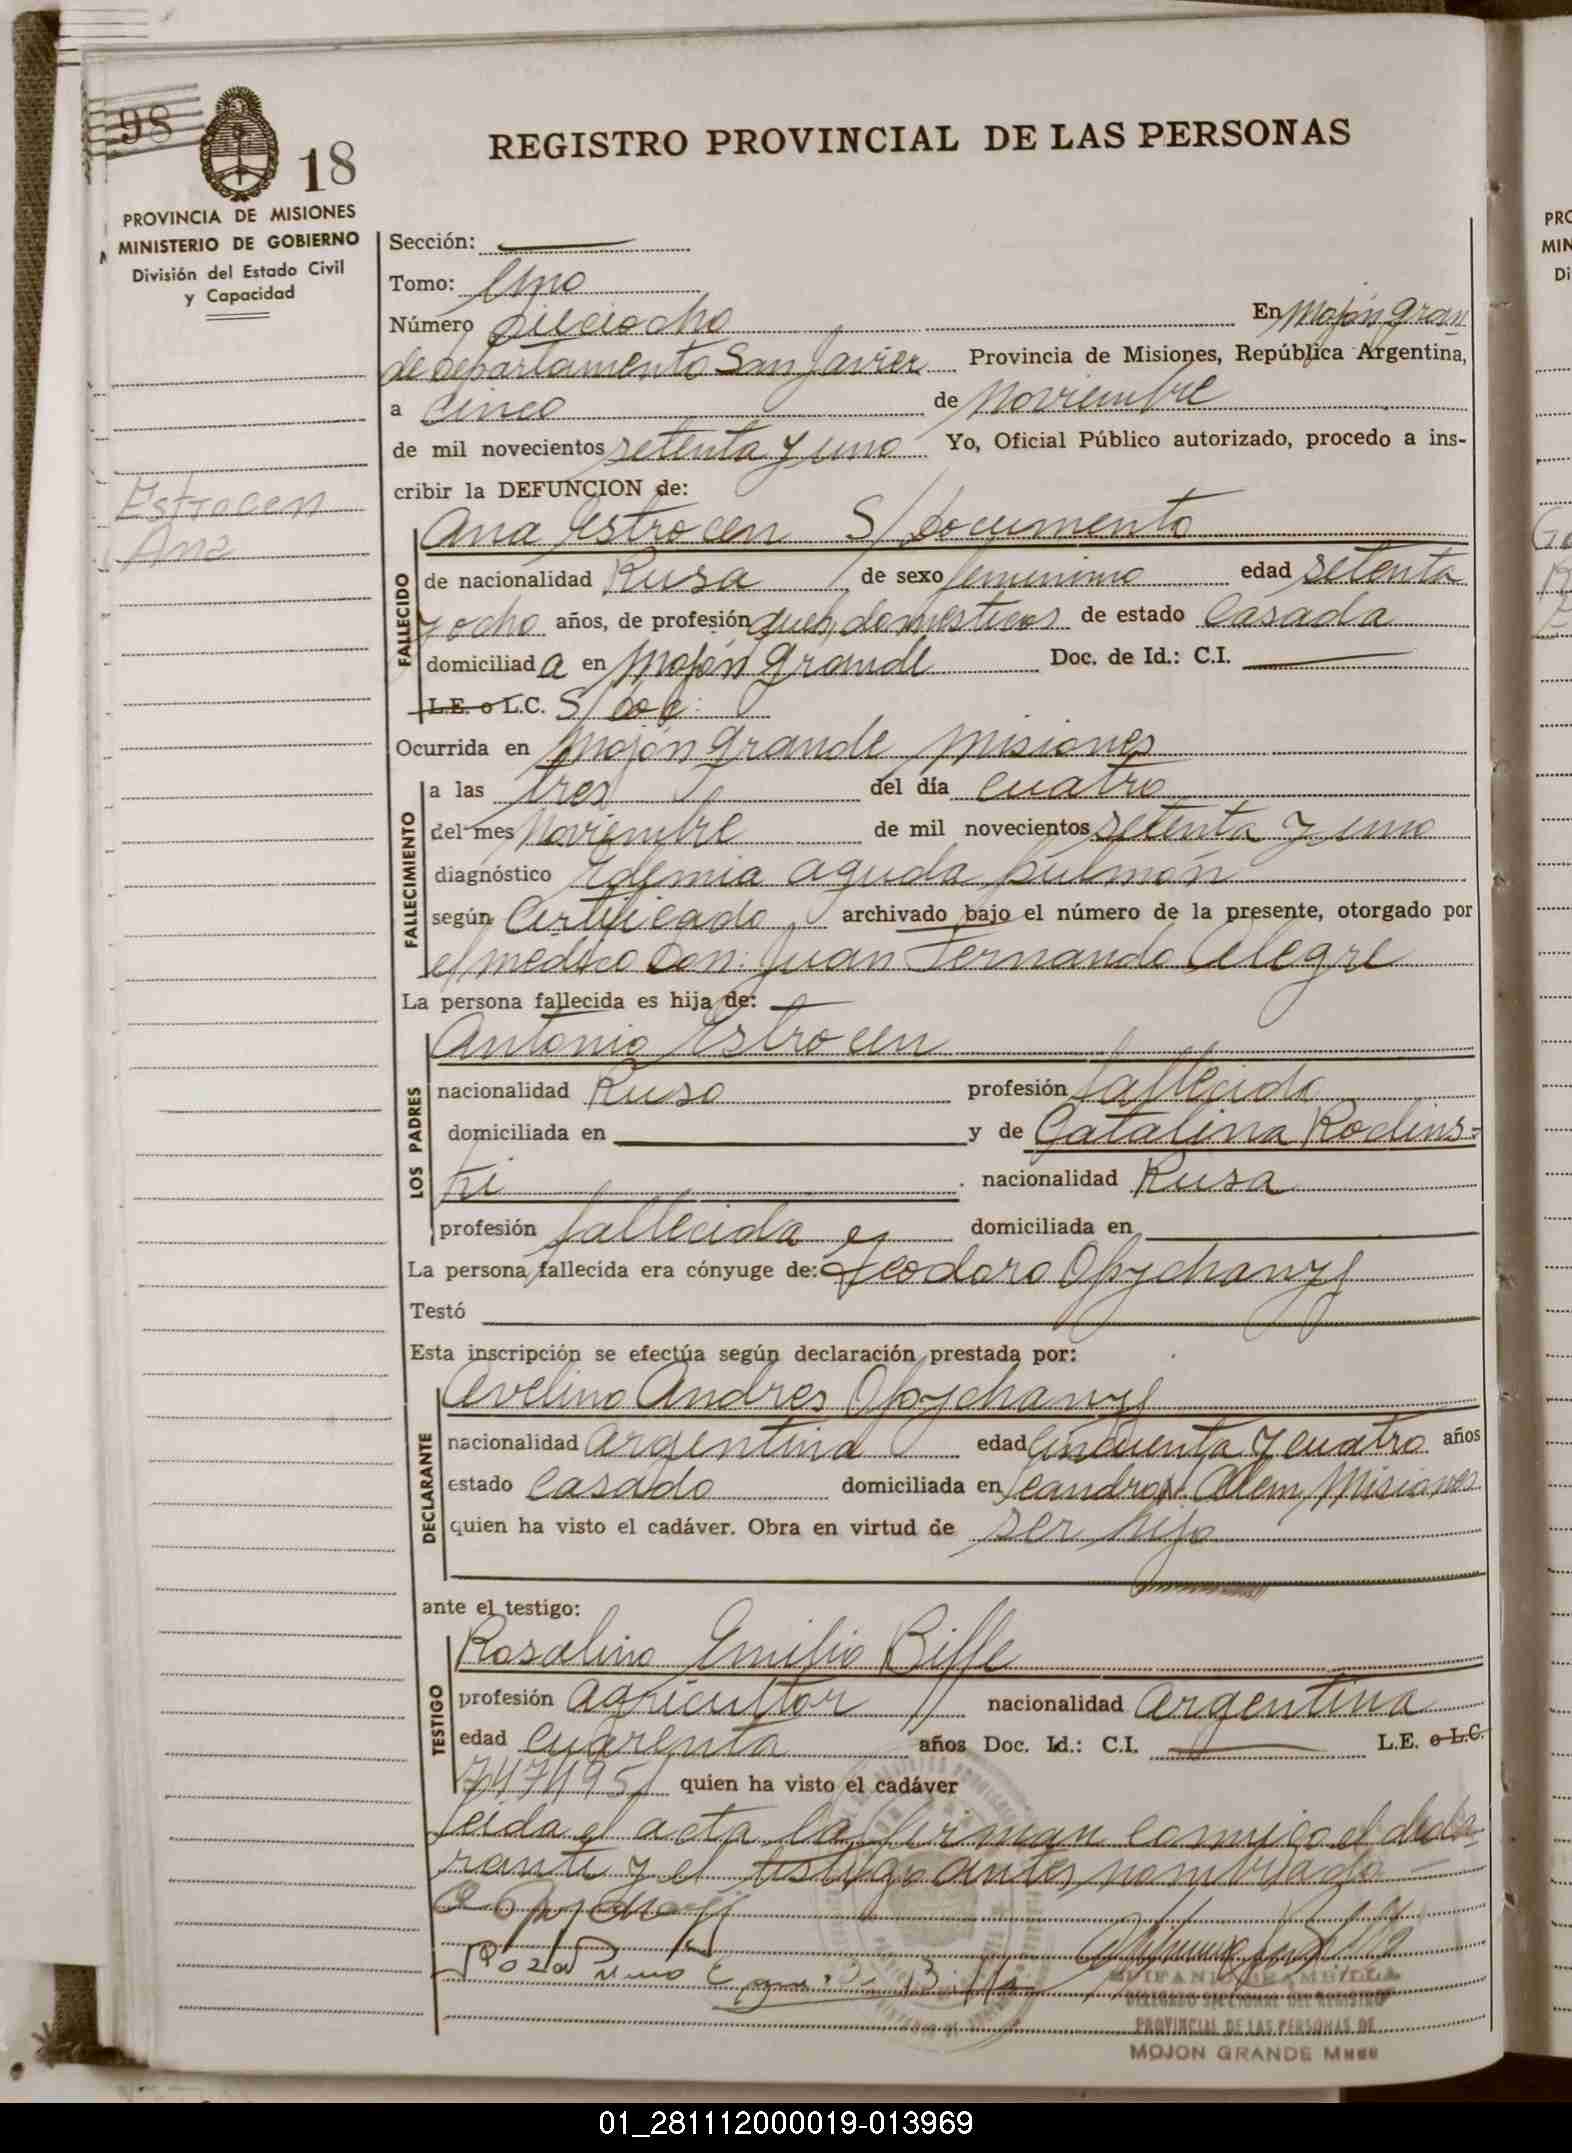 98
18
REGISTRO PROVINCIAL DE LAS PERSONAS
PROVINCIA DE MISIONES
MINISTERIO DE GOBIERNO
División del Estado Civil
y Capacidad
Estrocen
Ana
Sección:
Tomo: Uno
Número dieciocho En Mojón Gran
de departamento San Javier Provincia de Misiones, República Argentina,
a cinco de Noviembre
de mil novecientos setenta y uno Yo, Oficial Público autorizado, procedo a ins-
cribir la DEFUNCION de:
Ana Estrocen S/documento
FALLECIDO
de nacionalidad Rusa de sexo femenino edad setenta
y ocho años, de profesión queh. domesticos de estado Casada
domiciliada en Mojón Grande Doc. de Id.: C.I.
L.E. o L.C. S/doc.
Ocurrida en Mojón Grande Misiones
FALLECIMIENTO
a las tres del día cuatro
del mes Noviembre de mil novecientos setenta y uno
diagnóstico Edemia aguda pulmón
según Certificado archivado bajo el número de la presente, otorgado por
el médico Don: Juan Fernando Alegre
La persona fallecida es hija de:
LOS PADRES
Antonio Estrocen
nacionalidad Ruso profesión fallecido
domiciliada en y de Catalina Rodins-
ki nacionalidad Rusa
profesión fallecida domiciliada en
La persona fallecida era cónyuge de: Teodoro Opychanyj
Testó
Esta inscripción se efectúa según declaración prestada por:
DECLARANTE
Avelino Andres Opychanyj
nacionalidad Argentina edad Cincuenta y cuatro años
estado Casado domiciliada en Leandro N. Alem, Misiones
quien ha visto el cadáver. Obra en virtud de ser hijo
ante el testigo:
TESTIGO
Rosalino Emilio Biffe
profesión Agricultor nacionalidad Argentina
edad cuarenta años Doc. Id.: C.I. L.E. o L.C.
quien ha visto el cadáver
leida el acta la firman conmigo el decla-
rante y el testigo antes nombrado
DELEGADO SECCIONAL DEL REGISTRO
PROVINCIAL DE LAS PERSONAS DE
MOJON GRANDE Mnes
01_281112000019-013969